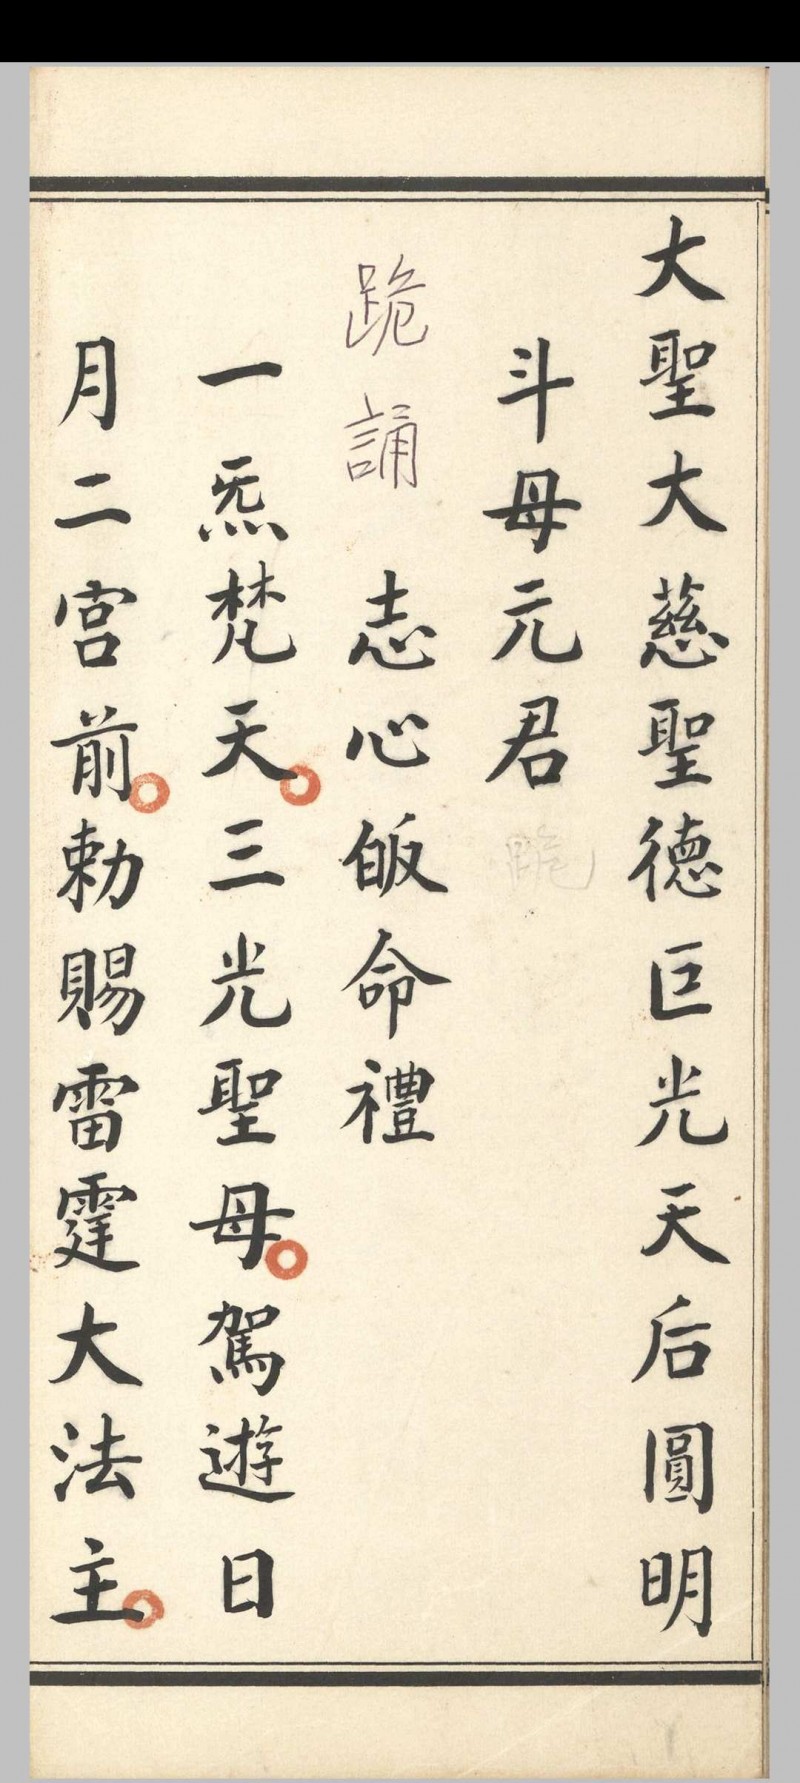 大聖大慈聖德巨光天后圓明
斗母元君跪
跪誦 志心皈命禮
一炁梵天。三光聖母。駕遊日
月二宮前。勅賜雷霆大法主。